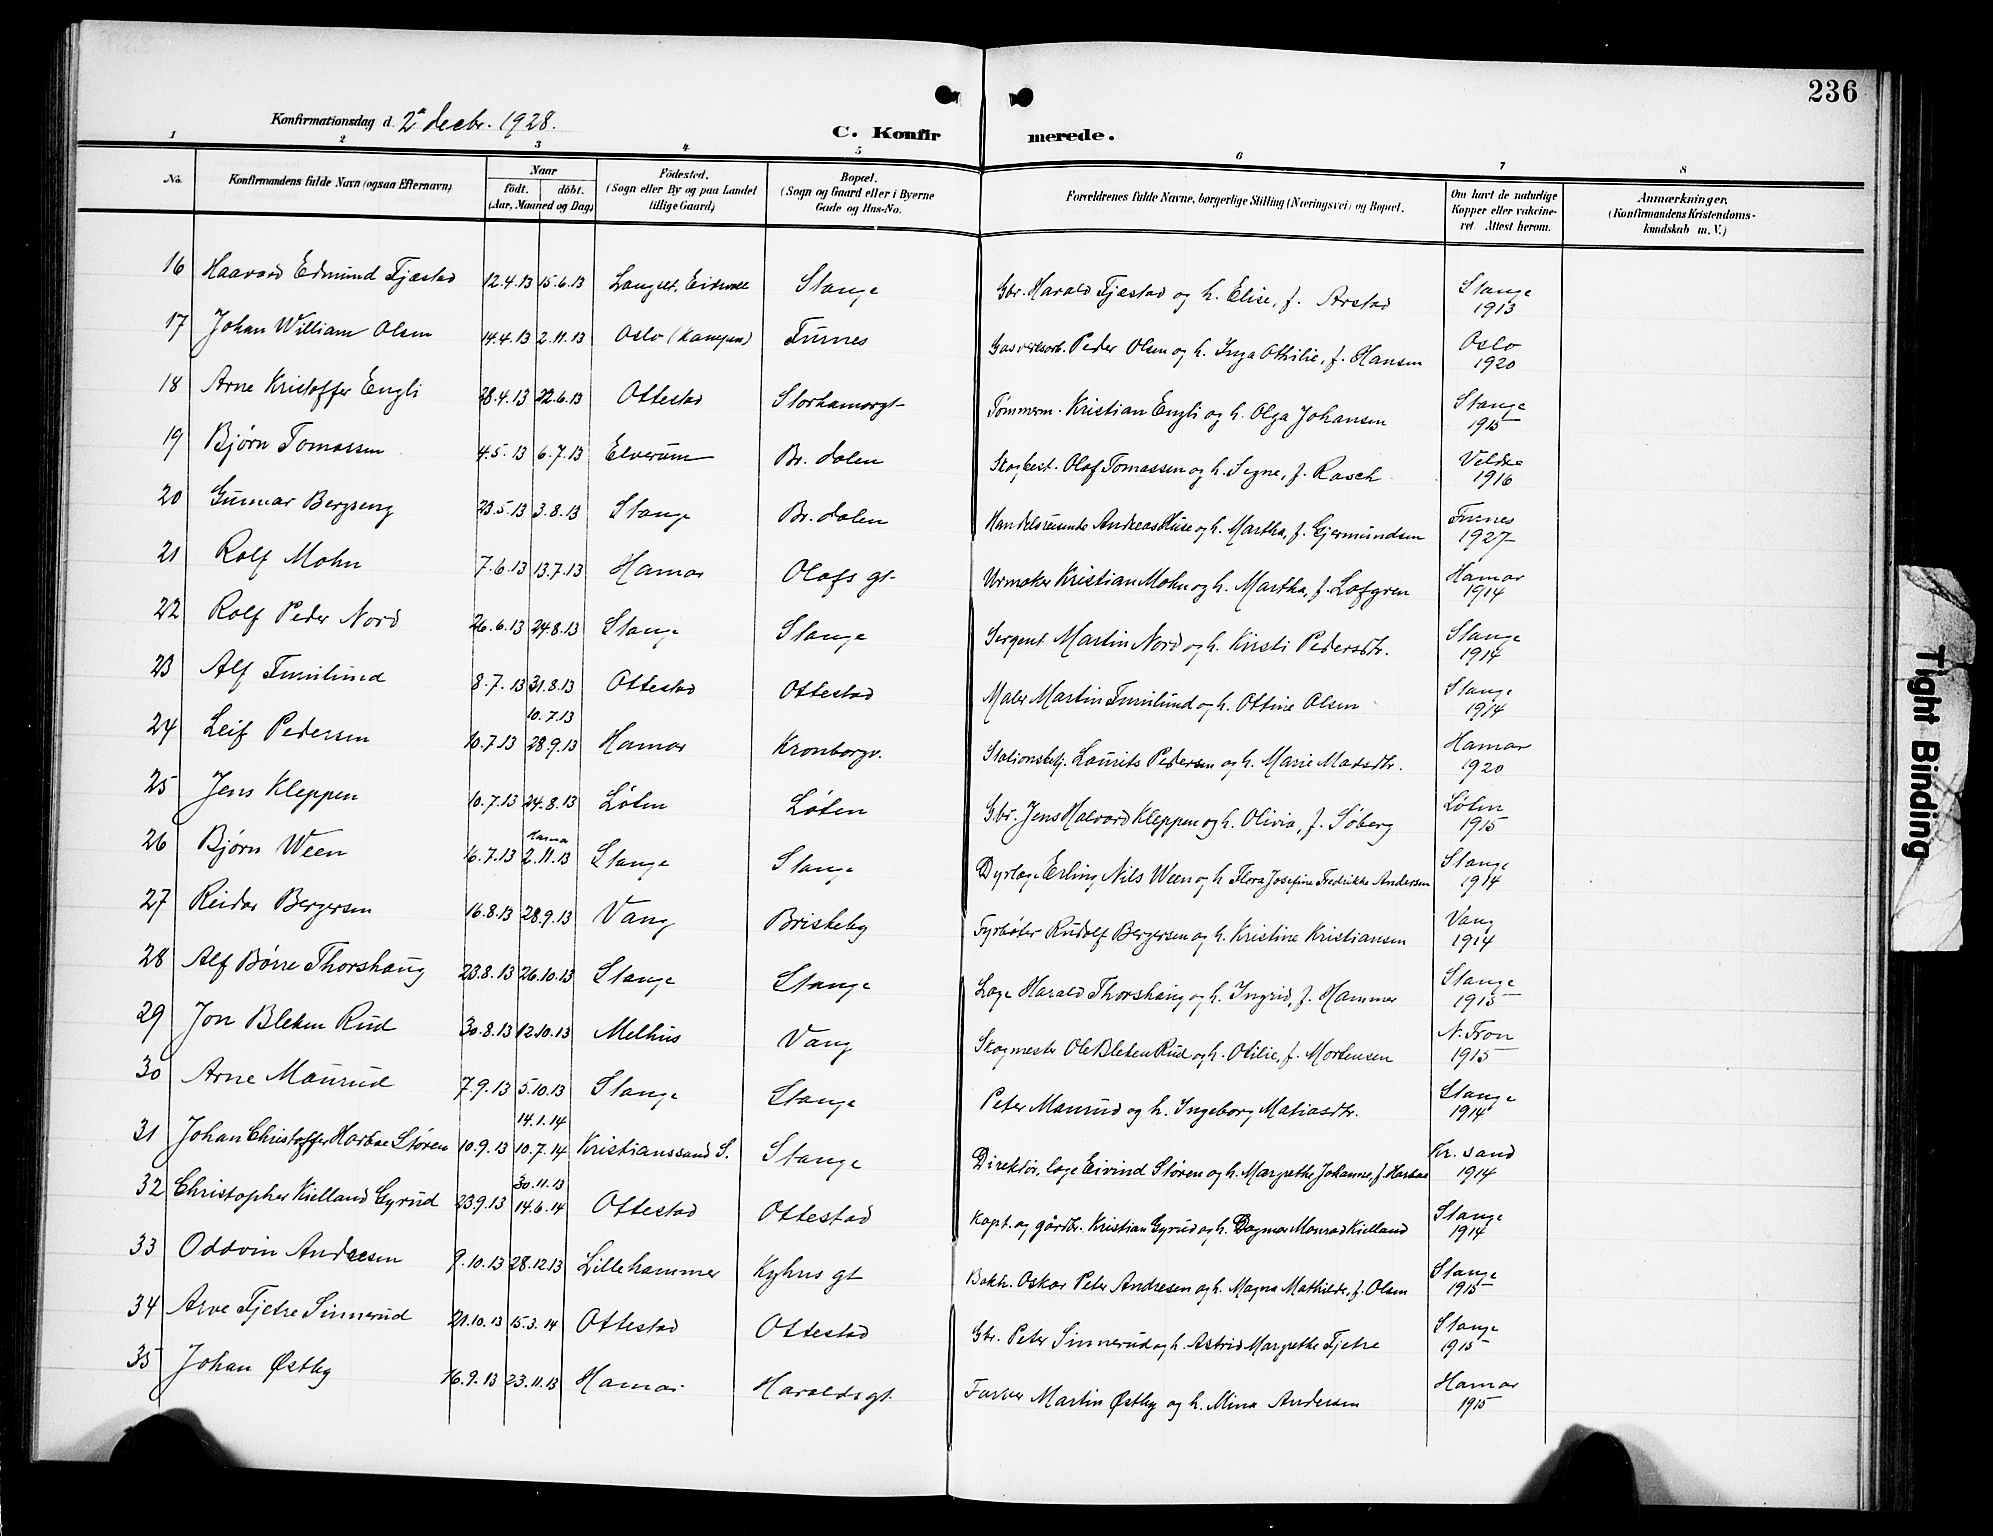 236
Konfirmationsdag d. 2n decbr. 1928.
C. Konfirmerede.
1 2 3 4 5 6 7 8
No. Konfirmandens fulde Navn (ogsaa Efternavn) Naar født. døbt. (Aar, Maaned og Dag) Fødested. (Sogn eller By og paa Landet tillige Gaard) Bopæl. (Sogn og Gaard eller i Byerne Gade og Hus-No. Forældrenes fulde Navne, borgerlige Stilling (Næringsvei) og Bopæl. Om havt de naturlige Kopper eller vakcineret. Attest herom. Anmærkninger. (Konfirmandens Kristendomskundskab m. V.)
16 Haavard Edmund Fjæstad 12.4.13 15.6.13 Langset, Eidsvoll Stange Gbr. Harald Fjæstad og h. Elise, f. Arstad Stange 1913
17 Johan William Olsen 14.4.13 2.11.13 Oslo (Kampen) Furnes Gasverksarb. Peder Olsen og h. Inga Othilie, f. Hansen Oslo 1920
18 Arne Kristoffer Engli 28.4.13 22.6.13 Ottestad Storhamargt- Tømmerm. Kristian Engli og h. Olga Johansen Stange 1915
19 Bjørn Tomassen 4.5.13 6.7.13 Elverum Br. dalen Skogbest. Olaf Tomassen og h. Signe, f. Rasch Veldre 1916
20 Gunnar Bergseng 23.5.13 3.8.13 Stange Br. dalen Handelsreisende Andreas Huse og h. Martha, f. Gjermundsen Furnes 1927
21 Rolf Mohn 7.6.13 13.7.13 Hamar Olafs gt- Urmaker Kristian Mohn og h. Martha, f. Lofgren Hamar 1914
22 Rolf Peder Nord 26.6.13 24.8.13 Stange Stange Sergent Martin Nord og h. Kirsti Pedersdtr. Stange 1914
23 Alf Furulund 8.7.13 31.8.13 Ottestad Ottestad Maler Martin Furulund og h. Ottine Olsen Stange 1914
24 Leif Pedersen 10.7.13 10.7.13 28.9.13 Hamar Kronborgv. Stationsbetj. Laurits Pedersen og h. Marie Madsdtr. Hamar 1920
25 Jens Kleppen 10.7.13 24.8.13 Løten Løten Gbr. Jens Halvard Kleppen og h. Olivia, f. Søberg Løten 1915
26 Bjørn Ween 16.7.13 Hamar 2.11.13 Stange Stange Dyrlæge Erling Nils Ween og h. Flora Josefine Fredrikke Andersen Stange 1914
27 Reidar Bergersen 16.8.13 28.9.13 Vang Briskeby Fyrbøter Rudolf Bergersen og h. Kristine Kristiansen Vang 1914
28 Alf Børre Thorshaug 23.8.13 26.10.13 Stange Stange Læge Harald Thorshaug og h. Ingrid, f. Hammer Stange 1915
29 Jon Bleken Rud 30.8.13 12.10.13 Melhus Vang Skogmester Ole Bleken Rud og h. Otilie, f. Mortensen N. Fron 1915
30 Arne Maurud 7.9.13 5.10.13 Stange Stange Peter Maurud og h. Ingeborg Matiasdtr. Stange 1914
31 Johan Christoffer Harbae Støren 10.9.13 14.1.14 10.7.14 Kristianssand S. Stange Direktør, læge Eivind Støren og h. Margrethe Johanne, f. Harboe Kr. sand 1914
32 Christopher Kielland Gyrud 23.9.13 30.11.13 14.6.14 Ottestad Ottestad Kapt. og gårdbr. Kristian Gyrud og h. Dagmar Monrad Kielland Stange 1914
33 Oddvin Andresen 9.10.13 28.12.13 Lillehammer Kyhus gt Bokh. Oskar Peter Andresen og h. Magna Mathilde, f. Olsen Stange 1915
34 Arve Fjetre Sinnerud 21.10.13 15.3.14 Ottestad Ottestad Gbr. Peter Sinnerud og h. Astrid Margrethe Fjetre Stange 1915
35 Johan Østby 16.9.13 23.11.13 Hamar Haralds gt. Farver Martin Østby og h. Mina Andersen Hamar 1915
Tight Binding